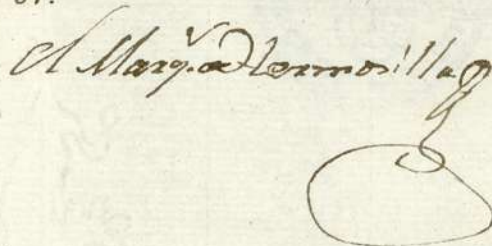 El Marq.s de Hermosilla